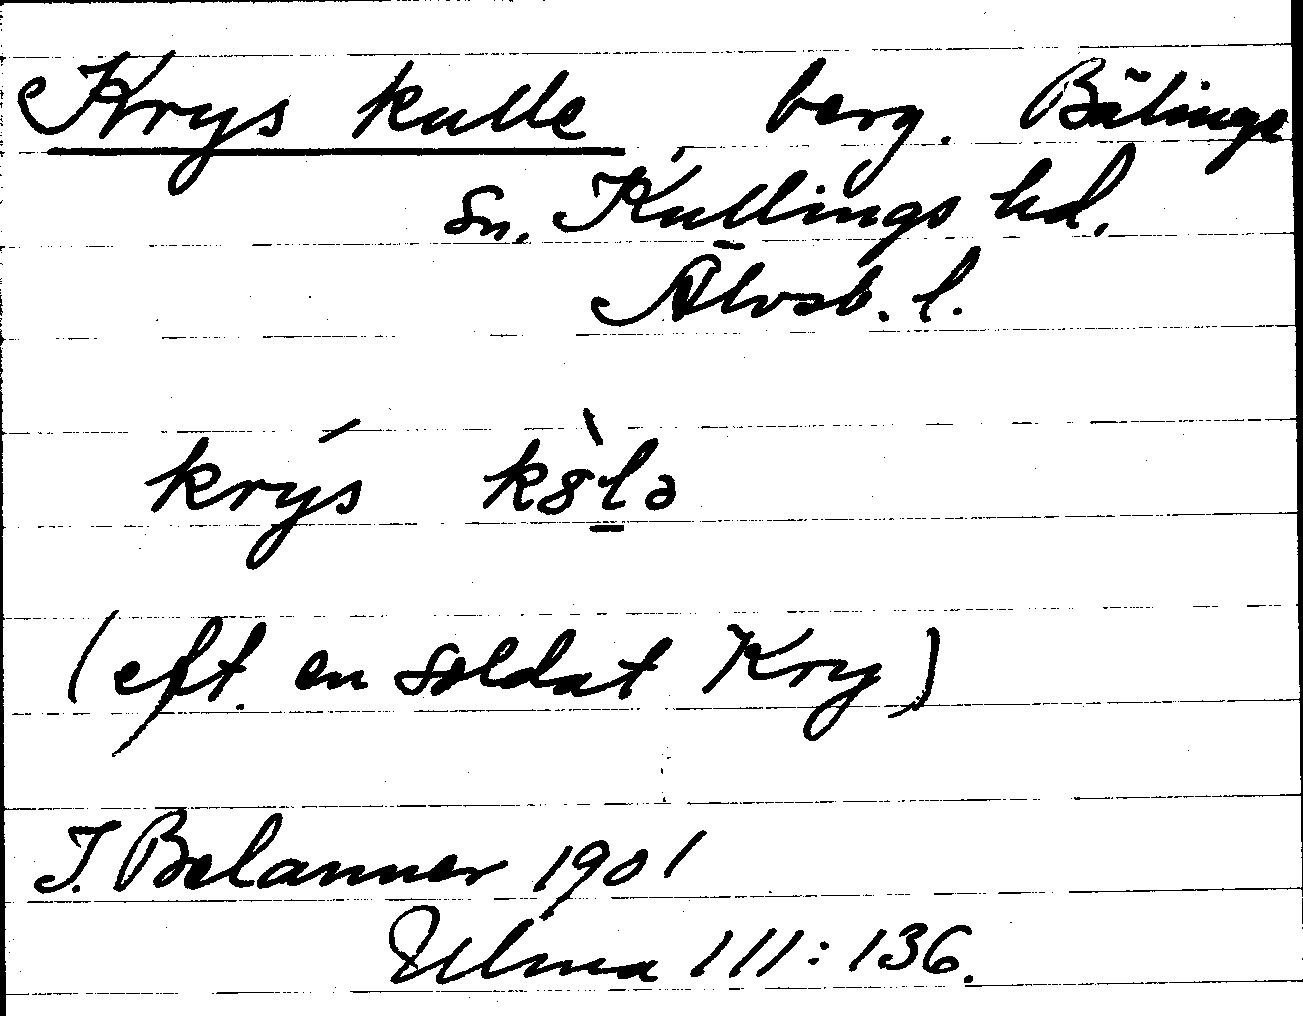 Krys kulle, berg. Bälinge
sn. Kullings hd.
Älvsb. l.
krýs k8̀lə
(eft. en soldat Kry)
J. Belanner 1901
Ulma 111:136.